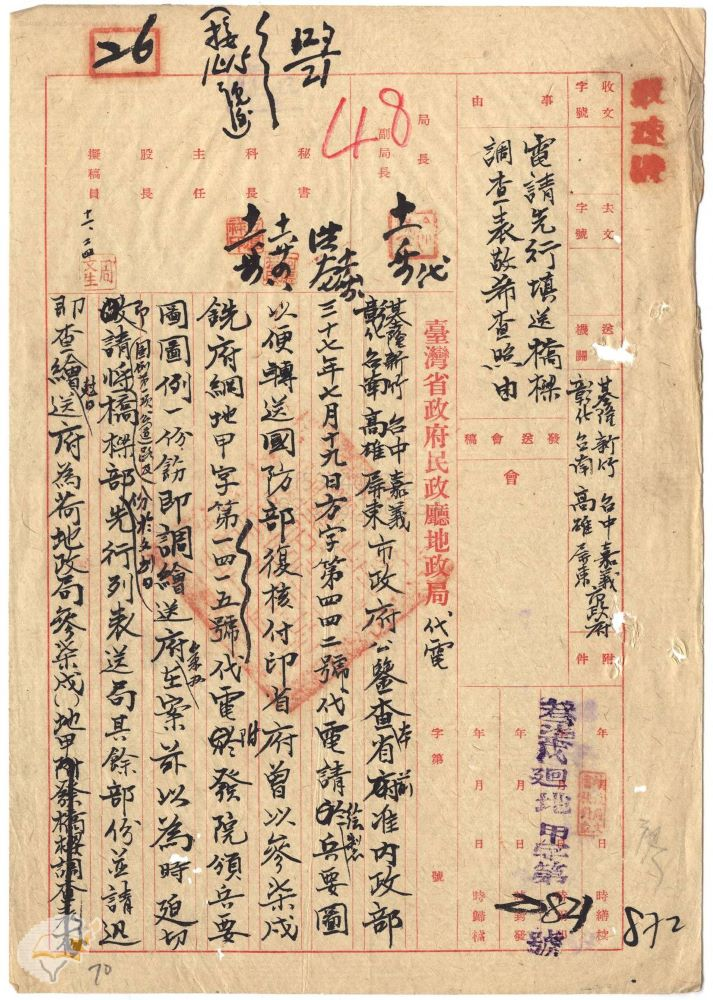 最速件
收文 字號
去文 字號
送達 機關
基隆 新竹 台中 嘉義
彰化 台南 高雄 屏東 市政府
附件
事由
電請先行填送橋樑
調查表敬希查照由
發送會稿
會
局長
副局長
秘書
科長
主任
股長
擬稿員
26
48
臺灣省政府民政廳地政局 代電
基隆新竹 台中 嘉義
彰化台南 高雄 屏東 市政府公鑒查省府前准內政部
三十七年七月十九日方字第四四二號代電請繪製兵要圖
以便轉送國防部復核付印省府曾以參柒戌
銑府綱地甲字第一四一五號代電附發院頒兵要
圖圖例一份飭即調繪送府在案茲以為時迫切
請將橋樑部先行列表送局其餘部份並請迅
即查繪送府為荷地政局參柒戌 地甲附發橋樑調查表
年 月 日 時繕校
年 月 日 時封發
年 月 日 時歸檔
字第 號
參柒戌迴地甲字第 號
872
70